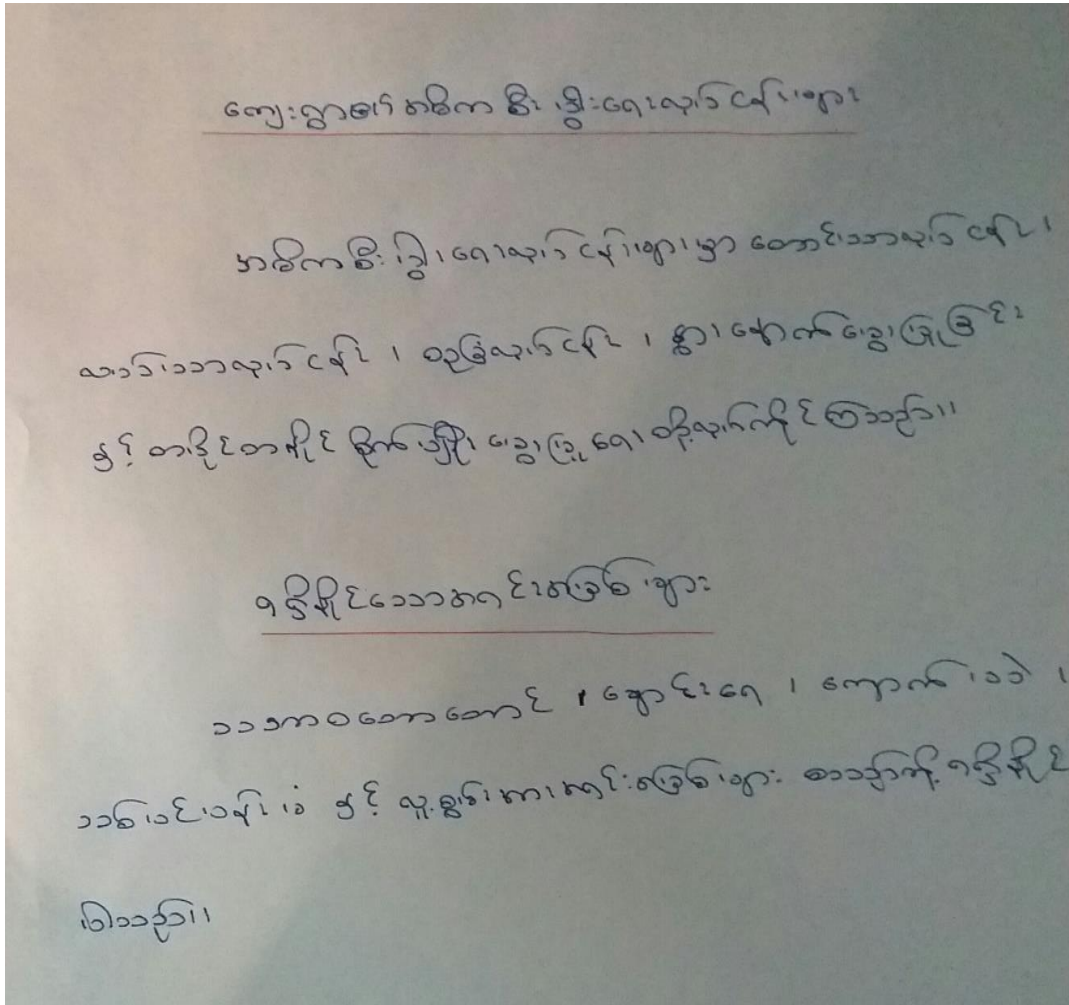 ကျေးရွာ၏ အဓိက စီးပွားရေးလုပ်ငန်းများ
အဓိကစီးပွါးရေးလုပ်ငန်းများမှာ တောင်ယာလုပ်ငန်း၊
လယ်ယာလုပ်ငန်း ၊ ဥယျာဉ်ခြံလုပ်ငန်း ၊ နွား၊ နောက်မွေးမြူခြင်း
နှင့် တပိုင်တနိုင် စိုက်ပျိုး မွေးမြူရေး တို့လုပ်ကိုင်ကြသည်။
ရရှိနိုင်သောအရင်းအမြစ်များ
သဘာဝတောတောင် ၊ ချောင်းရေ ၊ ကျောက် ၊ သဲ ၊
သစ်ပင်ပန်းမံ နှင့် လူ့စွမ်းအားအရင်းအမြစ်များ စသည်တို့ ရရှိနိုင်
ပါသည်။